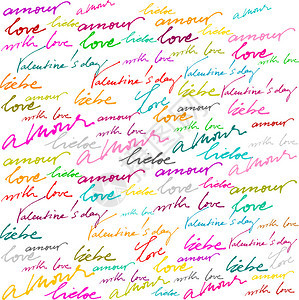 amour liebe amour
love amour love liebe
with love love liebe with love
liebe Valentine's day Valentine's day
liebe with love liebe with love
love amour love amour liebe
amour with love amour with love
amour liebe amour liebe
with love love liebe with love
Valentine's day with love Valentine's day
liebe Valentine's day liebe Valentine's day
amour love amour love
with love liebe with love
amour with love amour with love